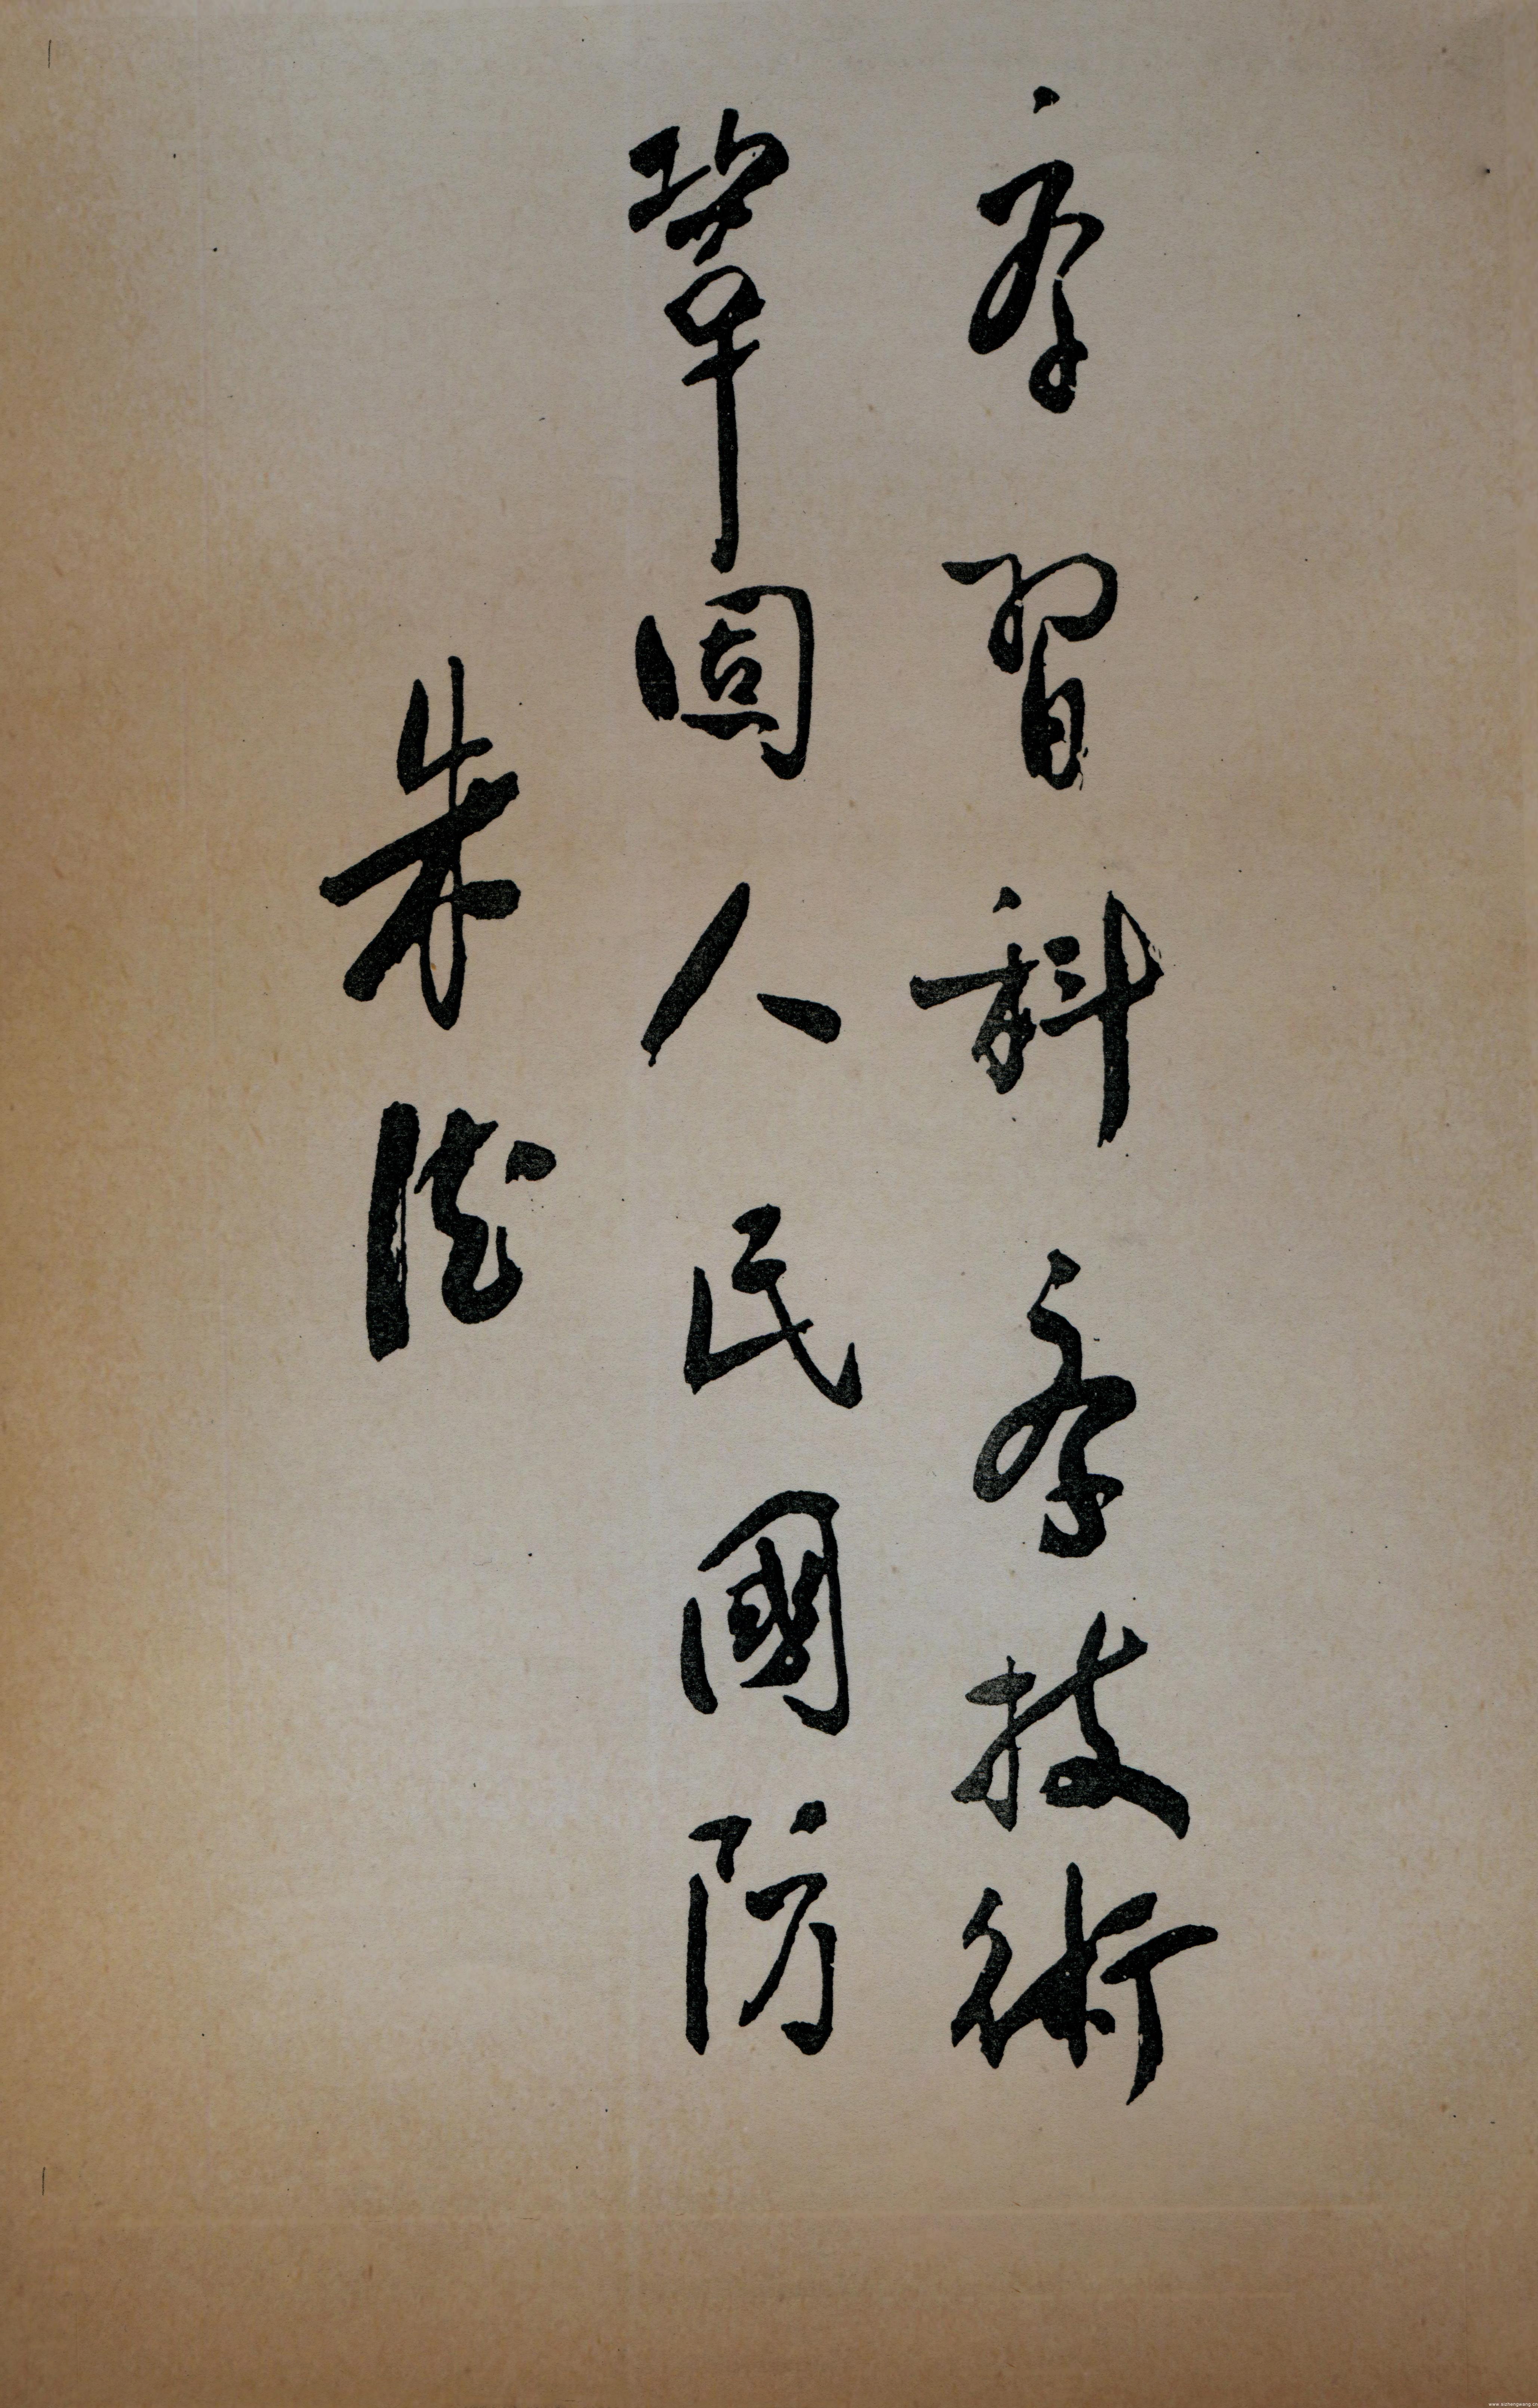 學習科學技術
鞏固人民國防
朱德